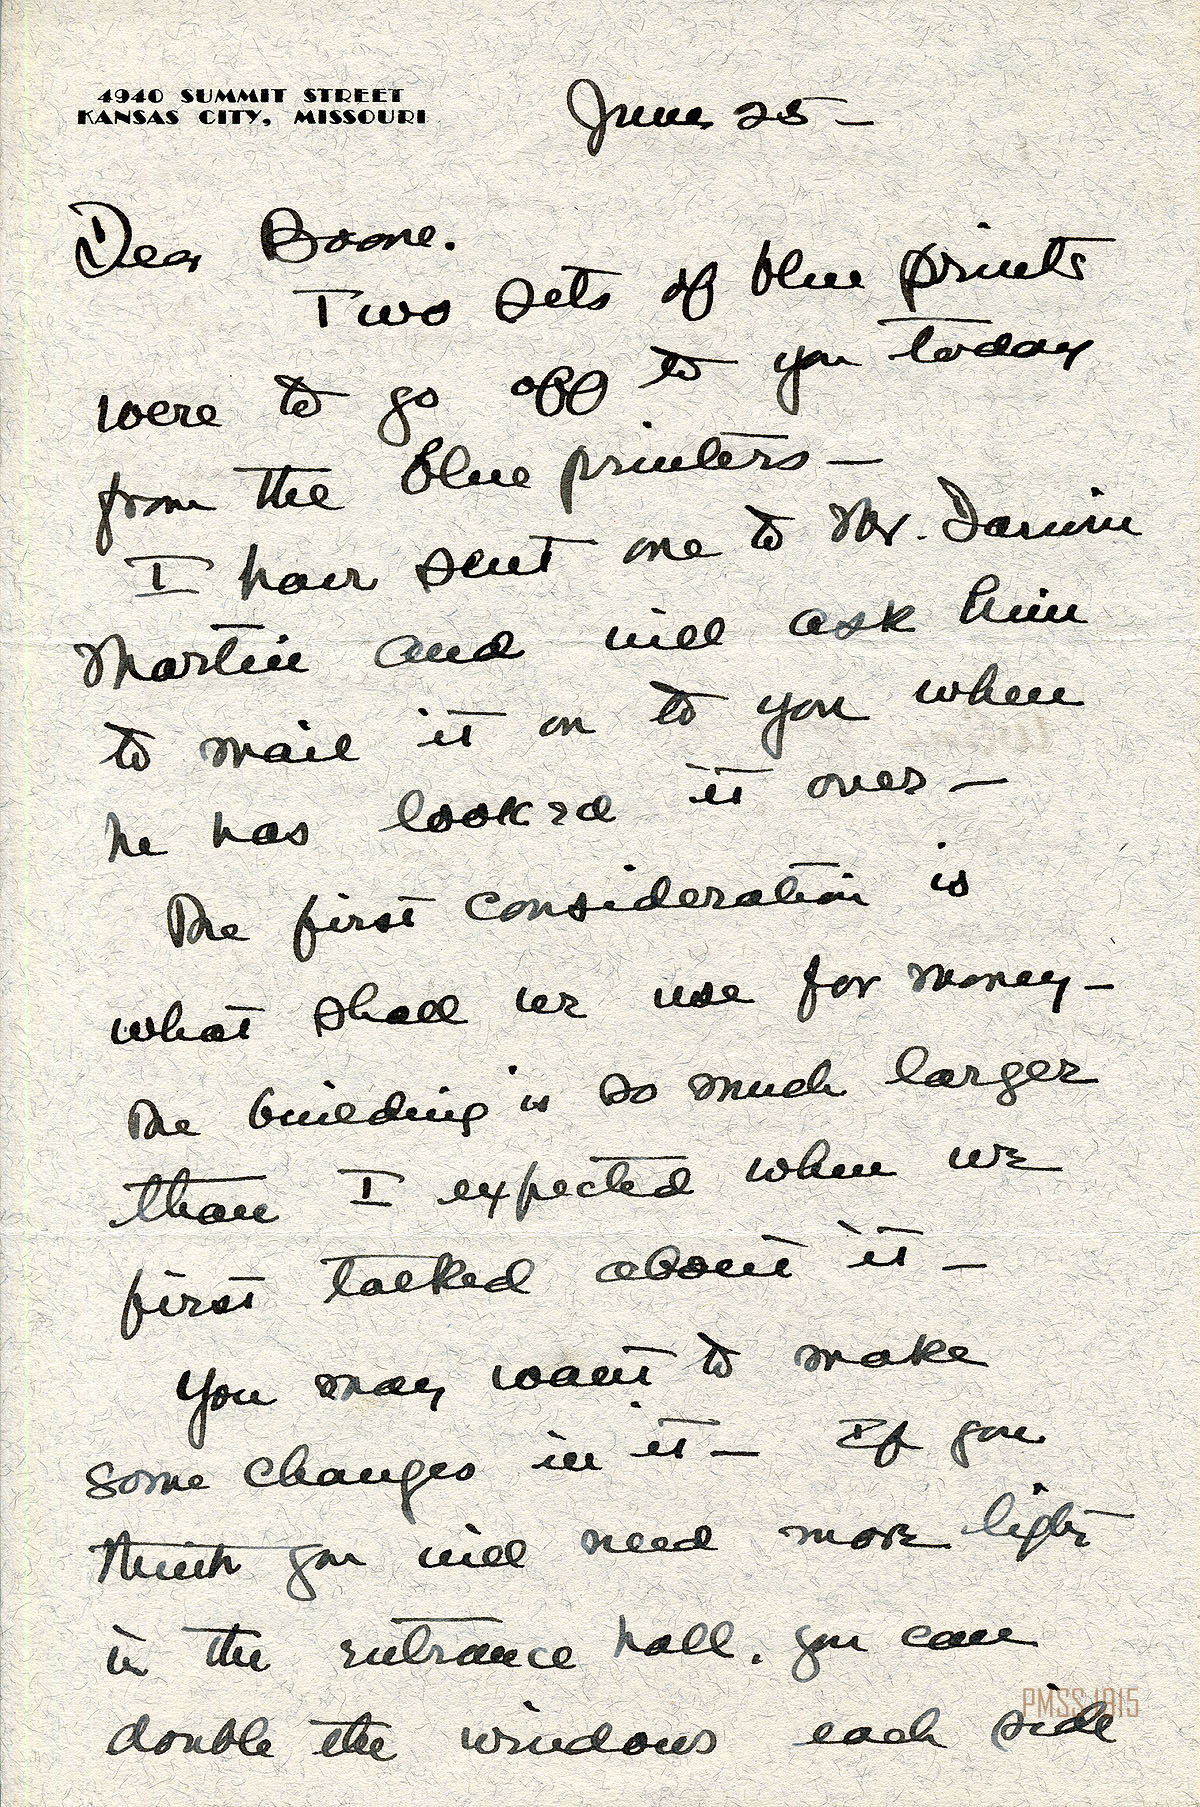 4940 SUMMIT STREET
KANSAS CITY, MISSOURI
June 25 —
Dear Boone.
Two sets of blue prints
were to go off to you today
from the blue printers —
I have sent one to Mr. Darwin
Martin and will ask him
to mail it on to you when
he has looked it over —
The first consideration is
what shall we use for money —
The building is so much larger
than I expected when we
first talked about it —
You may want to make
some changes in it — If you
think you will need more light
in the entrance hall. you can
double the windows each side
PMSS 1915